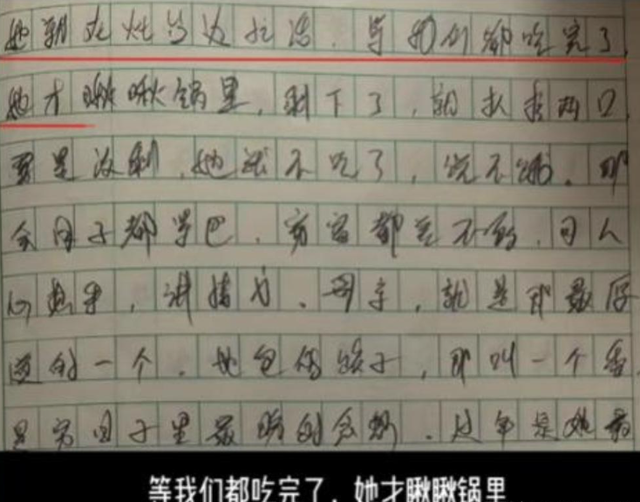 她朝灶台边拉活,等我们都吃完了,
她才瞅瞅锅里,剩下了,就扒拉两口,
要是没剩,她就不吃了,说不饿。那
会日子都紧巴,穷富都差不多,可人
心热乎,讲情义。母亲,就是那最厚
道的一个。她包的饺子,那叫一个香,
是穷日子里最
等我们都吃完了,她才瞅瞅锅里